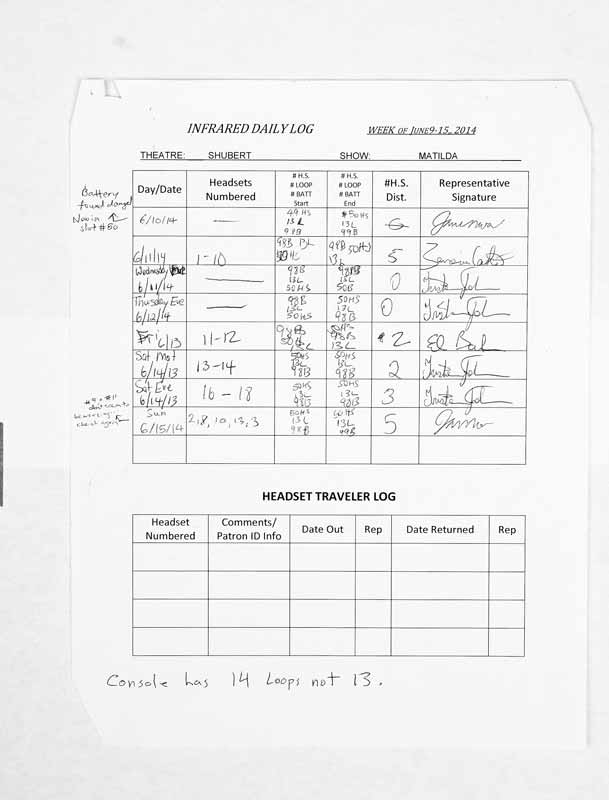 INFRARED DAILY LOG WEEK OF JUNE9-15, 2014
THEATRE: SHUBERT SHOW: MATILDA
Battery
found
Now in
slot #50
Day/Date Headsets Numbered # H.S. # LOOP # BATT Start # H.S. # LOOP # BATT End #H.S. Dist. Representative Signature
6/10/14 — 49HS 13L 98B 50HS 13L 99B
6/11/14 1-10 98B 13L 98B 50HS 13L 5
Wednesday Eve 6/11/14 — 98B 13L 50HS 98B 13L 0
Thursday Eve 6/12/14 — 98B 13L 50HS 50HS 13L 98B 0
Fri 6/13 11-12 98B 50HS 13L 50HS 98B 13L 2
Sat Mat 6/14/13 13-14 50HS 13L 98B 50HS 13L 98B 2
Sat Eve 6/14/13 16-18 50HS 13L 98B 50HS 13L 98B 3
Sun 6/15/14 2,8,10,13,3 50HS 13L 98B 13L 99B 5
HEADSET TRAVELER LOG
Headset Numbered Comments/ Patron ID Info Date Out Rep Date Returned Rep
Console has 14 Loops not 13.